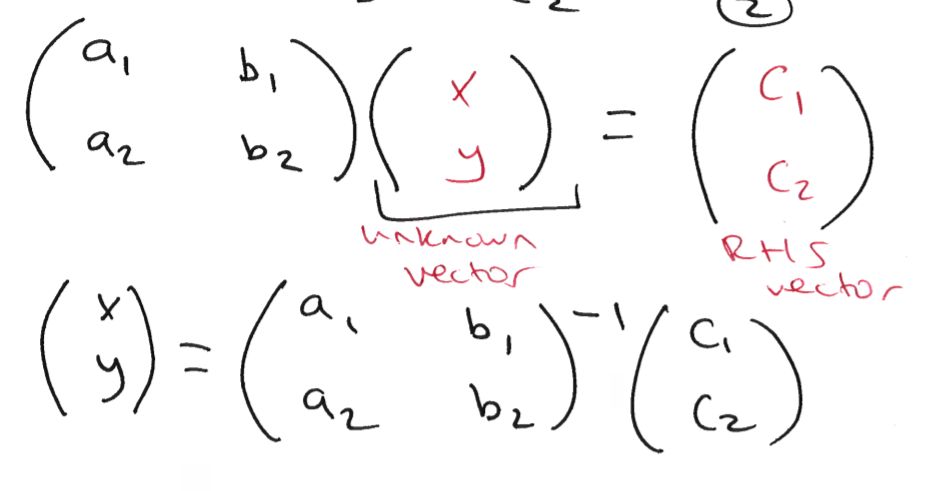 2
(a₁ b₁
a₂ b₂) (x
y) = (C₁
C₂)
unknown
vector
RHS
vector
(x
y) = (a₁ b₁
a₂ b₂)⁻¹ (C₁
C₂)